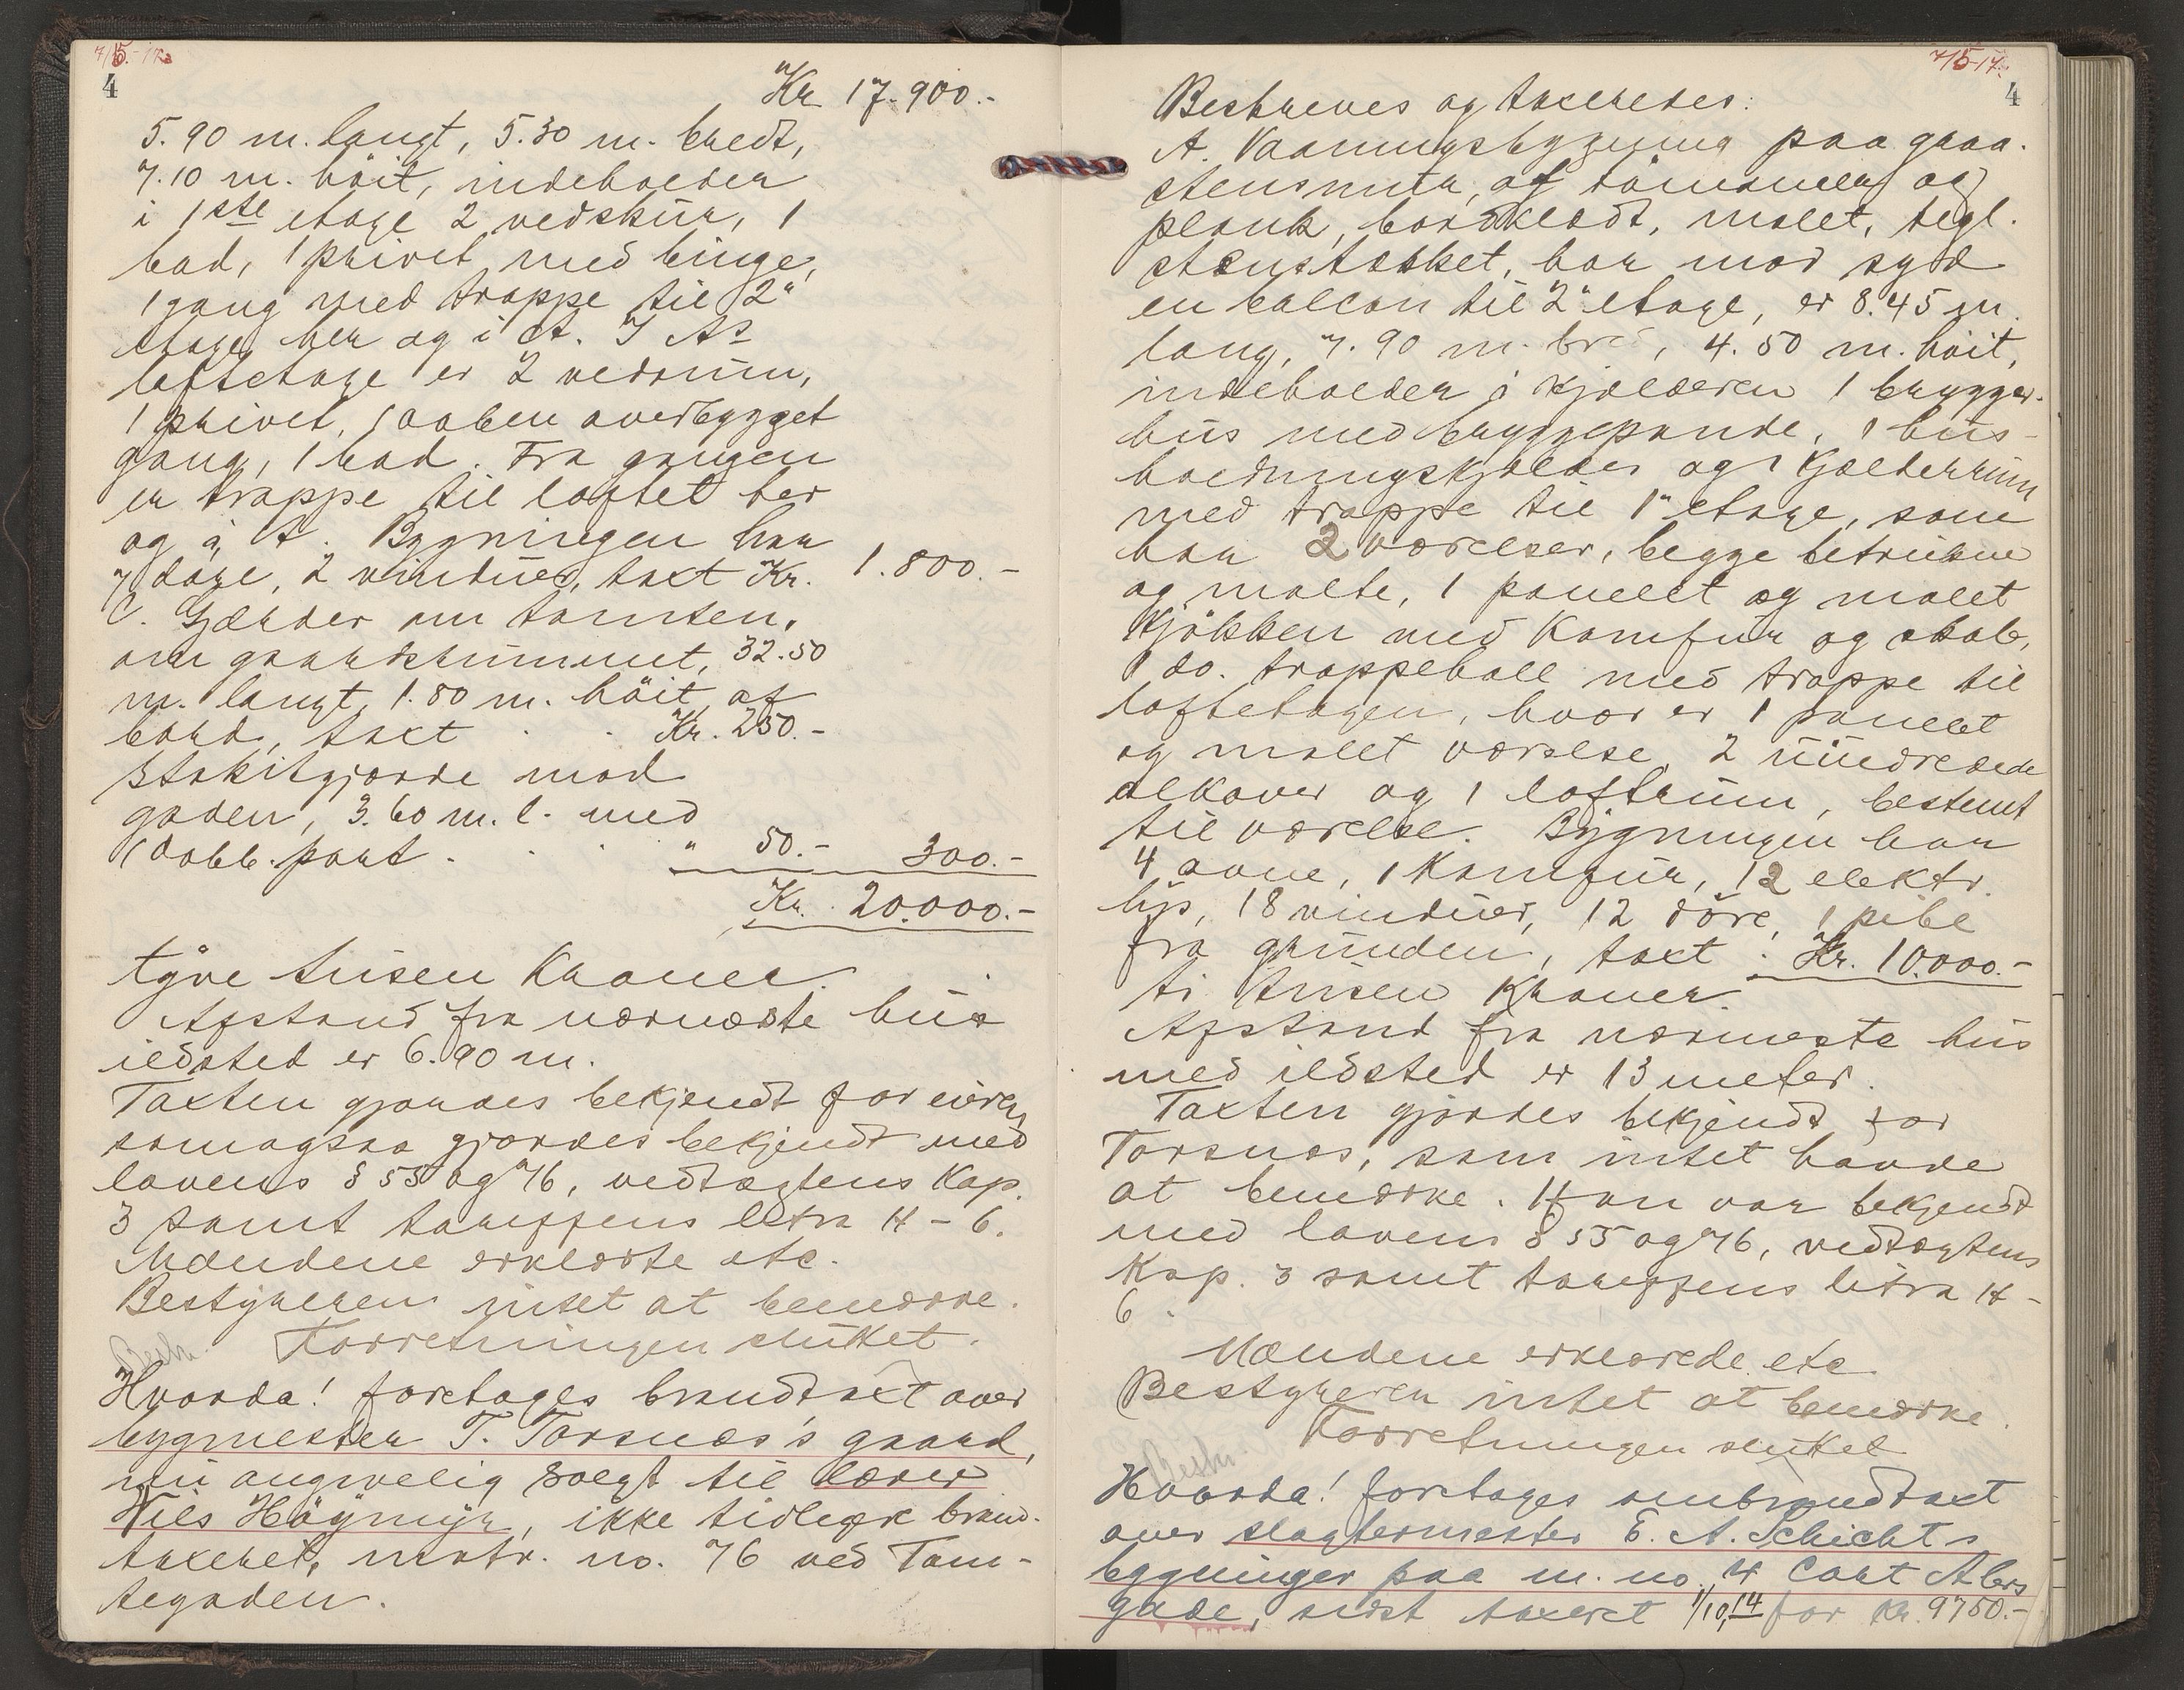 7/5-17.
4
Kr 17.900.-
5.90 m. langt, 5.30 m. bredt,
7.10 m. höit, indeholder
i 1ste etage 2 vedskur, 1
bod, 1 privet med binge,
1 gang med trappe til 2"
etage her og i A. I As
loftetage er 2 vedrum,
1 privet, 1 aaben overbygget
gang, 1 bod. Fra gangen
er trappe til loftet her
og i A. Bygningen har
7 döre, 2 vinduer, taxt Kr. 1.800.-
C. Gjærder om tomten,
om gaardsrummet, 32.50
m. langt, 1.80 m. höit af
bord, taxt . . Kr. 250.-
Stakitgjærde mod
gaden, 3.60 m. l. med
1 dobb. port . . . " 50.- 300.-
Kr. 20.000.-
tyve tusen kroner.
Afstand fra nærmeste hus
ildsted er 6.90 m.
Taxten gjordes bekjendt for eieren
som ogsaa gjordes bekjendt med
lovens § 55 og 76, vedtægtens Kap.
3 samt tariffens litra H - 6.
Mændene erklærte etc.
Bestyreren intet at bemærke.
Forretningen sluttet.
Beskr.
Hvorda! foretoges brandtaxt over
bygmester T. Torsnæs's gaard,
nu angivelig solgt til lærer
Nils Höymyr, ikke tidligere brand-
taxeret, matr. no. 76 ved Tom-
tegaden.
7/5-17.
4
Beskreves og taxeredes:
A. Vaaningsbygning paa graa-
stensmur, af tömmer og
plank, bordklædt, malet, tegl-
stenstækket, har mod syd
en balcon til 2" etage, er 8.45 m.
lang, 7.90 m. bred, 4.50 m. höit,
indeholder i kjælderen 1 brygger-
hus med bryggepande, 1 hus-
holdningskjælder og 1 kjælderrum
med trappe til 1" etage, som
har 2 værelser, begge betrukne
og malte, 1 panelet og malet
kjökken med komfur og skab,
1 do. trappehall med trappe til
loftetagen, hvor er 1 panelet
og malet værelse, 2 uindredede
alkover og 1 loftrum, bestemt
til værelse. Bygningen har
4 ovne, 1 komfur, 12 elektr.
lys, 18 vinduer, 12 döre, 1 pibe
fra grunden, taxt . Kr. 10.000.-
ti tusen kroner.
Afstand fra nærmeste hus
med ildsted er 13 meter.
Taxten gjordes bekjendt for
Torsnæs, som intet havde
at bemærke. Han var bekjendt
med lovens § 55 og 76, vedtægtens
Kap. 3 samt tariffens litra H -
6.
Mændene erklærede etc
Bestyreren intet at bemærke.
Forretningen sluttet
Beskr.
Hvorda! foretoges ombrandtaxt
over slagtermester E. A. Schichts
bygninger paa m. no. 4 Cort Alers
gade, sidst taxeret 1/10,14 for Kr. 9750.-